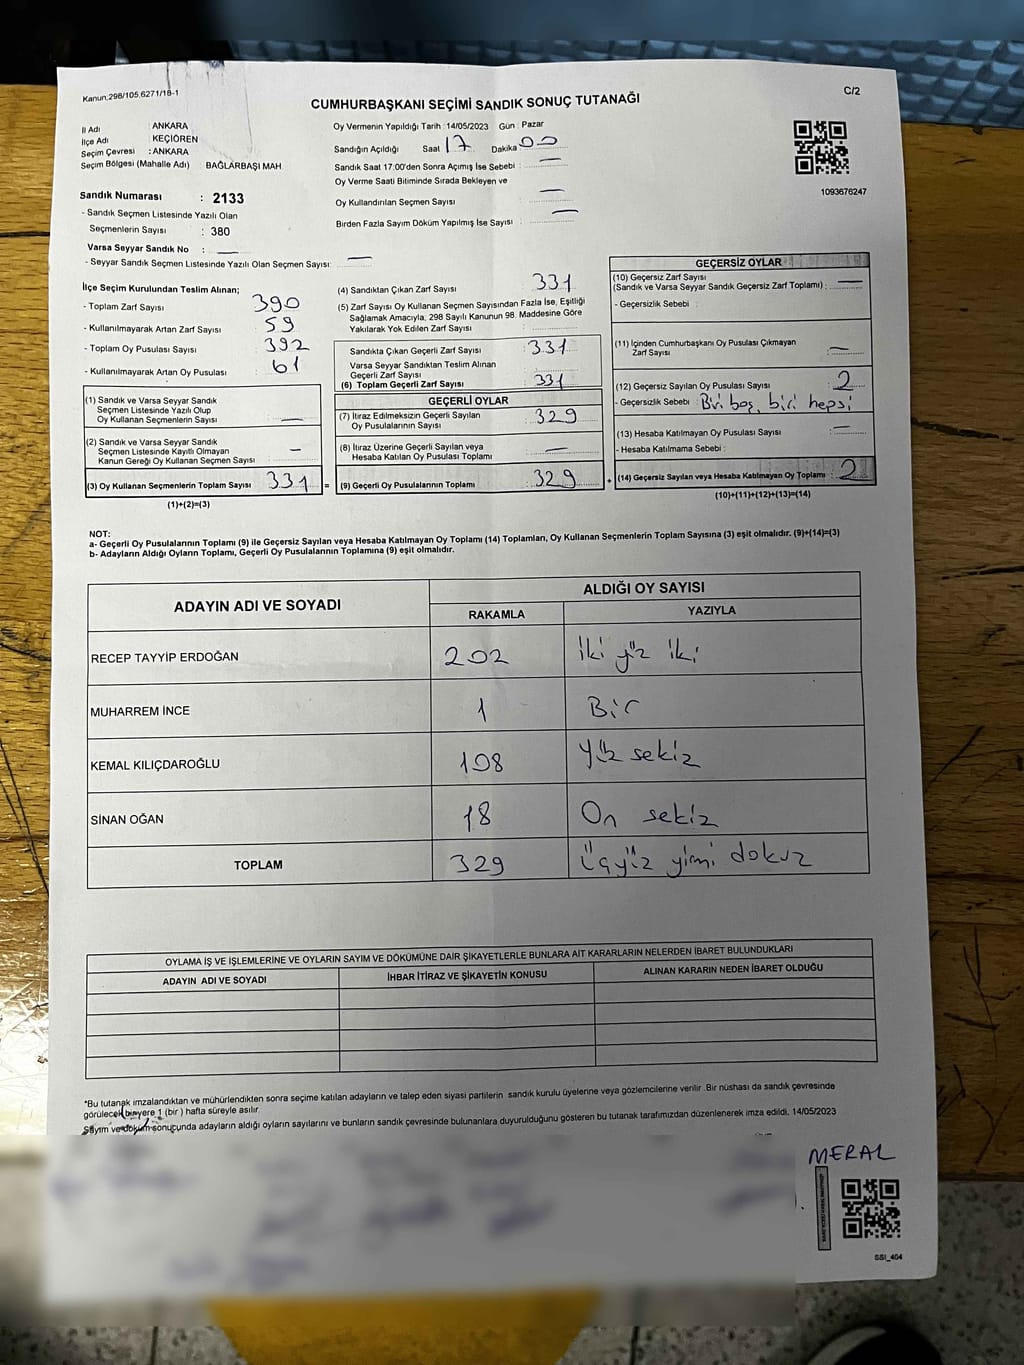 Kanun:298/105,6271/18-1
C/2
CUMHURBAŞKANI SEÇİMİ SANDIK SONUÇ TUTANAĞI
İl Adı : ANKARA
İlçe Adı : KEÇİÖREN
Seçim Çevresi : ANKARA
Seçim Bölgesi (Mahalle Adı) : BAĞLARBAŞI MAH
Sandık Numarası : 2133
- Sandık Seçmen Listesinde Yazılı Olan
Seçmenlerin Sayısı : 380
Varsa Seyyar Sandık No : —
- Seyyar Sandık Seçmen Listesinde Yazılı Olan Seçmen Sayısı: —
Oy Vermenin Yapıldığı Tarih :14/05/2023 Gün : Pazar
Sandığın Açıldığı Saat 17 Dakika 00
Sandık Saat 17.00'den Sonra Açımış İse Sebebi : —
Oy Verme Saati Bitiminde Sırada Bekleyen ve
Oy Kullandırılan Seçmen Sayısı —
Birden Fazla Sayım Döküm Yapılmış İse Sayısı : —
1093676247
İlçe Seçim Kurulundan Teslim Alınan;
- Toplam Zarf Sayısı : 390
- Kullanılmayarak Artan Zarf Sayısı : 59
- Toplam Oy Pusulası Sayısı : 392
- Kullanılmayarak Artan Oy Pusulası : 61
(1) Sandık ve Varsa Seyyar Sandık
Seçmen Listesinde Yazılı Olup
Oy Kullanan Seçmenlerin Sayısı : —
(2) Sandık ve Varsa Seyyar Sandık
Seçmen Listesinde Kayıtlı Olmayan
Kanun Gereği Oy Kullanan Seçmen Sayısı : —
(3) Oy Kullanan Seçmenlerin Toplam Sayısı : 331 =
(1)+(2)=(3)
(4) Sandıktan Çıkan Zarf Sayısı : 331
(5) Zarf Sayısı Oy Kullanan Seçmen Sayısından Fazla İse, Eşitliği
Sağlamak Amacıyla, 298 Sayılı Kanunun 98. Maddesine Göre
Yakılarak Yok Edilen Zarf Sayısı :
Sandıkta Çıkan Geçerli Zarf Sayısı : 331
Varsa Seyyar Sandıktan Teslim Alınan
Geçerli Zarf Sayısı :
(6) Toplam Geçerli Zarf Sayısı : 331
GEÇERLİ OYLAR
(7) İtiraz Edilmeksizin Geçerli Sayılan
Oy Pusulalarının Sayısı : 329
(8) İtiraz Üzerine Geçerli Sayılan veya
Hesaba Katılan Oy Pusulası Toplamı : —
(9) Geçerli Oy Pusulalarının Toplamı : 329 +
GEÇERSİZ OYLAR
(10) Geçersiz Zarf Sayısı
(Sandık ve Varsa Seyyar Sandık Geçersiz Zarf Toplamı) : —
- Geçersizlik Sebebi :
(11) İçinden Cumhurbaşkanı Oy Pusulası Çıkmayan
Zarf Sayısı : —
(12) Geçersiz Sayılan Oy Pusulası Sayısı : 2
- Geçersizlik Sebebi : Biri boş, biri hepsi
(13) Hesaba Katılmayan Oy Pusulası Sayısı : —
- Hesaba Katılmama Sebebi :
(14) Geçersiz Sayılan veya Hesaba Katılmayan Oy Toplamı : 2
(10)+(11)+(12)+(13)=(14)
NOT:
a- Geçerli Oy Pusulalarının Toplamı (9) ile Geçersiz Sayılan veya Hesaba Katılmayan Oy Toplamı (14) Toplamları, Oy Kullanan Seçmenlerin Toplam Sayısına (3) eşit olmalıdır. (9)+(14)=(3)
b- Adayların Aldığı Oyların Toplamı, Geçerli Oy Pusulalarının Toplamına (9) eşit olmalıdır.
ADAYIN ADI VE SOYADI
ALDIĞI OY SAYISI
RAKAMLA YAZIYLA
RECEP TAYYİP ERDOĞAN 202 iki yüz iki
MUHARREM İNCE 1 Bir
KEMAL KILIÇDAROĞLU 108 Yüz sekiz
SİNAN OĞAN 18 On sekiz
TOPLAM 329 Üçyüz yirmi dokuz
OYLAMA İŞ VE İŞLEMLERİNE VE OYLARIN SAYIM VE DÖKÜMÜNE DAİR ŞİKAYETLERLE BUNLARA AİT KARARLARIN NELERDEN İBARET BULUNDUKLARI
ADAYIN ADI VE SOYADI İHBAR İTİRAZ VE ŞİKAYETİN KONUSU ALINAN KARARIN NEDEN İBARET OLDUĞU
*Bu tutanak imzalandıktan ve mühürlendikten sonra seçime katılan adayların ve talep eden siyasi partilerin sandık kurulu üyelerine veya gözlemcilerine verilir .Bir nüshası da sandık çevresinde
görülecek bir yere 1 (bir ) hafta süreyle asılır.
Sayım ve döküm sonucunda adayların aldığı oyların sayılarını ve bunların sandık çevresinde bulunanlara duyurulduğunu gösteren bu tutanak tarafımızdan düzenlenerek imza edildi. 14/05/2023
MERAL
SSI_404